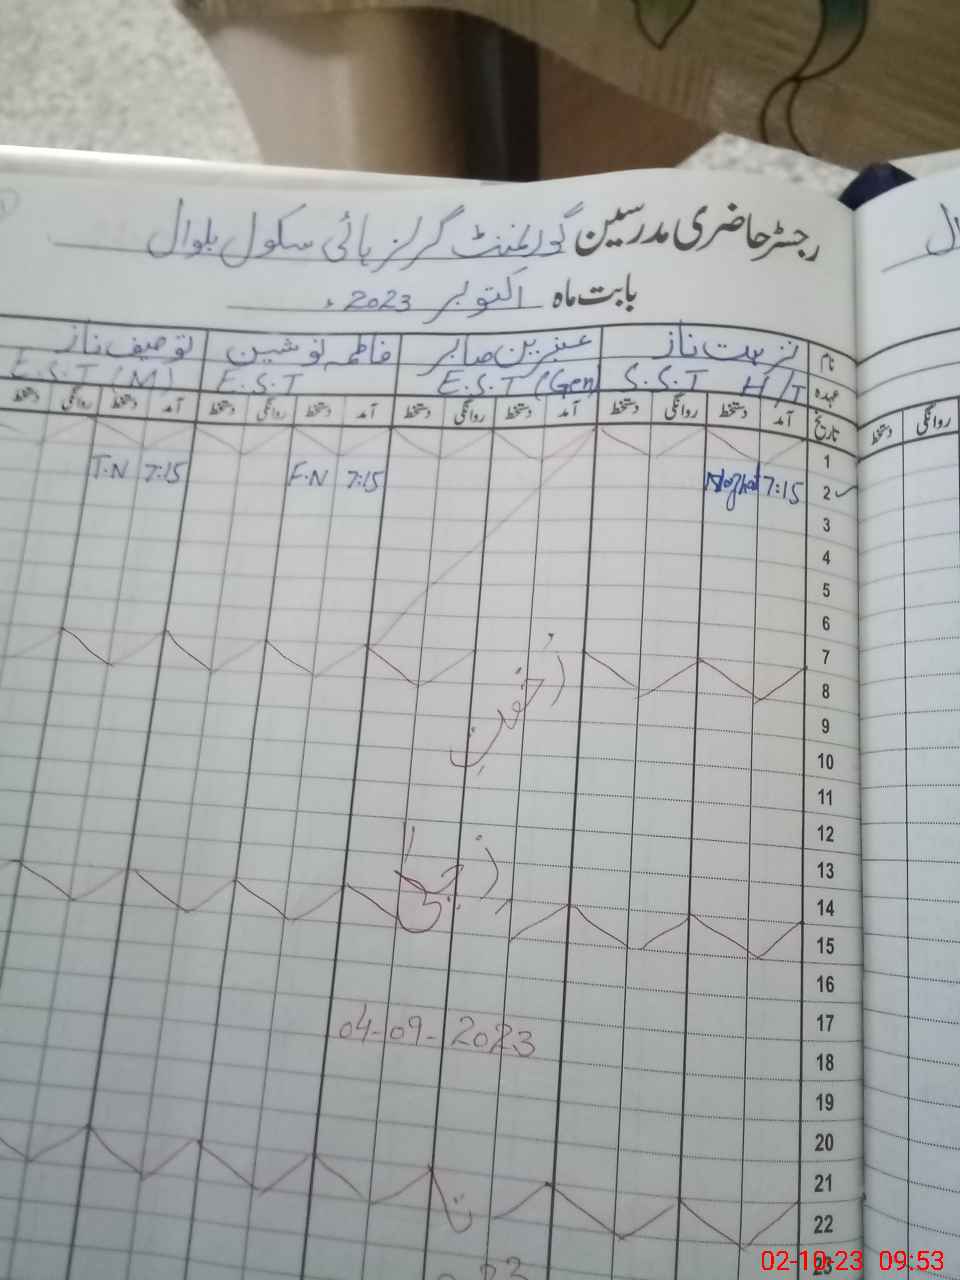 رجسٹر حاضری مدرسین گورنمنٹ گرلز ہائی سکول بلوال
بابت ماہ اکتوبر 2023ء
نام نزہت ناز عنبرین صابر فاطمہ نوشین توصیف ناز
عہدہ S.S.T H/T E.S.T (Gen) E.S.T E.S.T (M)
تاریخ آمد دستخط روانگی دستخط آمد دستخط روانگی دستخط آمد دستخط روانگی دستخط آمد دستخط روانگی دستخط
روانگی دستخط
1
2 7:15 Nozhat F.N 7:15 T.N 7:15
3
4
5
6
7
8
رخصت
9
10
11
12
13
زچگی
14
15
16
17
04-09-2023
18
19
20
21
22
تا
23
02-10-23 09:53